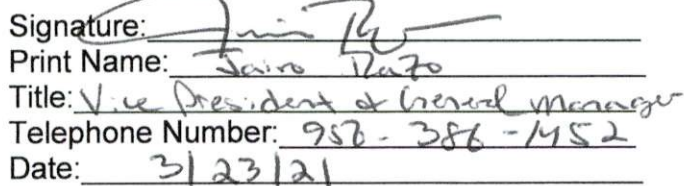 Signature:
Print Name: Jairo Razo
Title: Vice President & General Manager
Telephone Number: 956-386-1452
Date: 3/23/21